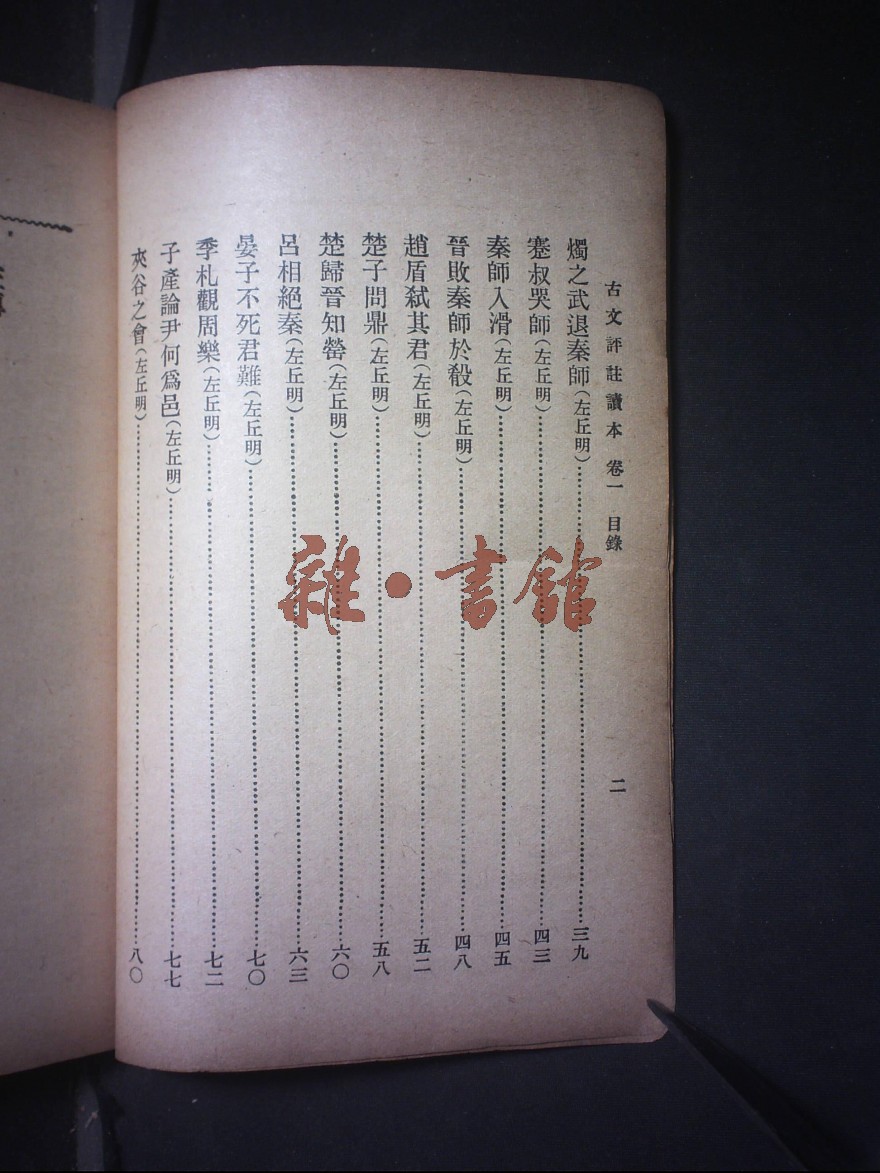 古文評註讀本 卷一 目錄 二
燭之武退秦師(左丘明)……三九
蹇叔哭師(左丘明)……四三
秦師入滑(左丘明)……四五
晉敗秦師於殽(左丘明)……四八
趙盾弑其君(左丘明)……五二
楚子問鼎(左丘明)……五八
楚歸晉知罃(左丘明)……六〇
呂相絕秦(左丘明)……六三
晏子不死君難(左丘明)……七〇
季札觀周樂(左丘明)……七二
子產論尹何爲邑(左丘明)……七七
夾谷之會(左丘明)……八〇
雜·書館